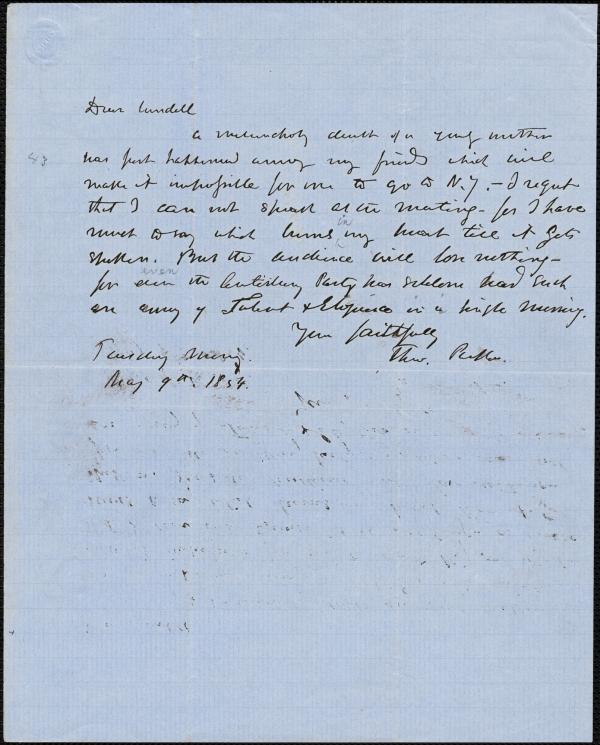 Dear Wendell
a melancholy death of a young mother
has just happened among my friends which will
make it impossible for me to go to N.Y. - I regret
that I can not speak at the meeting - for I have
much to say which burns in my heart till it gets
spoken. But the audience will lose nothing -
for even the Antislavery Party has seldom heard such
an array of Talent & Eloquence in a single morning.
Yours faithfully
Theo. Parker.
Tuesday Morning.
May 9th. 1854.